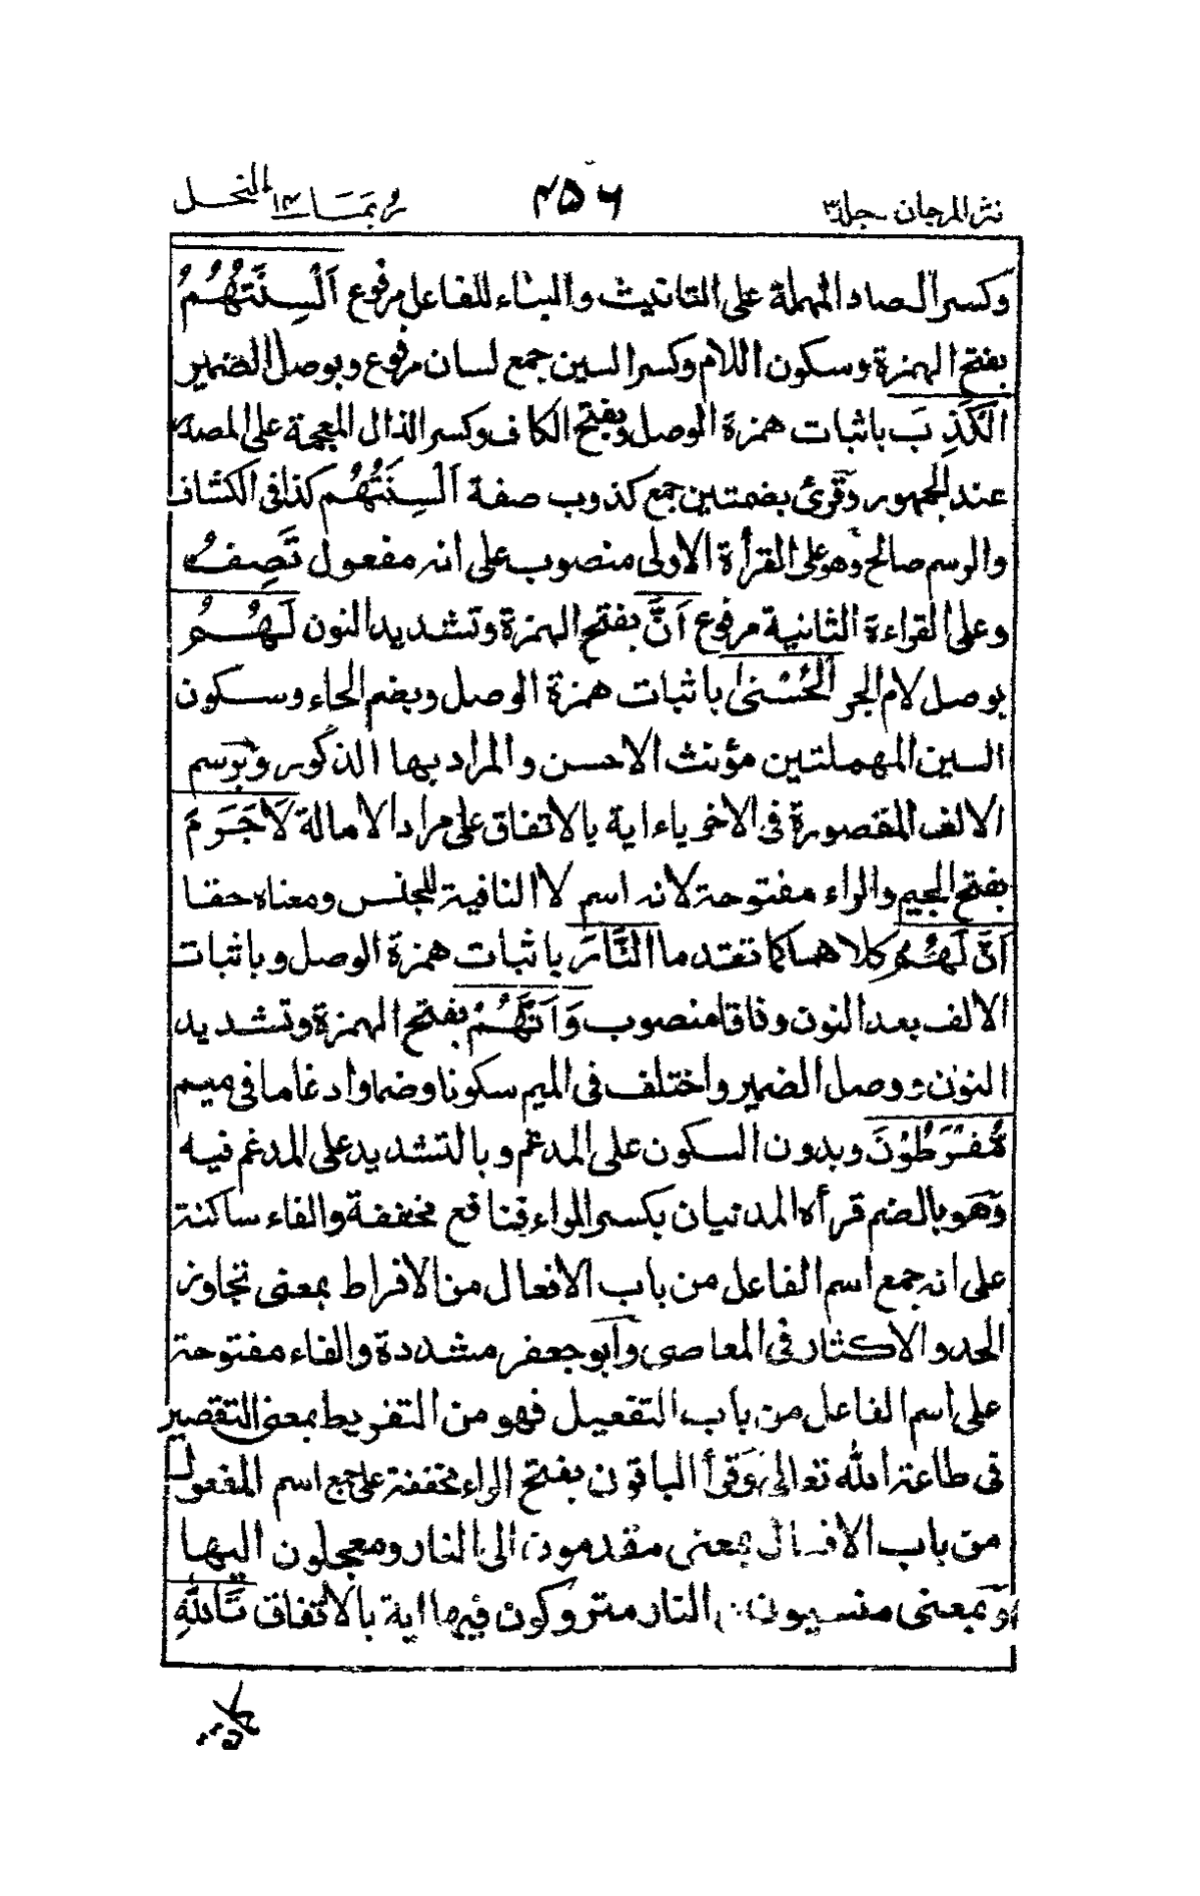 نثر المرجان جلد۳ ۴۵۶ ربما ۱۴ النحل
وكسر الصاد المهملة على التانيث والبناء للفاعل مرفوع اَلْسِنَتُهُمُ
بفتح الهمزة وسكون اللام وكسر السين جمع لسان مرفوع وبوصل الضمير
الْكَذِبَ باثبات همزة الوصل وبفتح الكاف وكسر الذال المعجمة على المصدر
عند الجمهور وقرئ بضمتين جمع كذوب صفة اَلْسِنَتُهُم كذا فى الكشاف
والرسم صالح وهو على القرأة الاولى منصوب على انه مفعول تَصِفُ
وعلى القراءة الثانية مرفوع اَنَّ بفتح الهمزة وتشديد النون لَهُمُ
بوصل لام الجر الْحُسْنىٰ باثبات همزة الوصل وبضم الحاء وسكون
السين المهملتين مؤنث الاحسن والمراد بها الذكور وبرسم
الالف المقصورة فى الاخر ياء اية بالاتفاق على مراد الامالة لَاجَرَمَ
بفتح الجيم والراء مفتوحة لانه اسم لا النافية للجنس ومعناه حقا
اَنَّ لَهُمُ كلاهما كما تقدما النَّارَ باثبات همزة الوصل وباثبات
الالف بعد النون وفاقا منصوب وَاَنَّهُمْ بفتح الهمزة وتشديد
النون ووصل الضمير واختلف فى الميم سكونا وضما وادغاما فى ميم
مُّفْرَطُوْنَ وبدون السكون على المدغم وبالتشديد على المدغم فيه
وَهو بالضم قرأه المدنيان بكسر الراء فنافع مخففة والفاء ساكنة
على انه جمع اسم الفاعل من باب الافعال من الافراط بمعنى تجاوز
الحد والاكثار فى المعاصى وابو جعفر مشددة والفاء مفتوحة
على اسم الفاعل من باب التفعيل فهو من التفريط بمعنى التقصير
فى طاعة الله تعالى وَقرأ الباقون بفتح الراء مخففة على جمع اسم المفعول
من باب الافعال بمعنى مقدمون الى النار ومعجلون اليها
اَو بمعنى منسيون فى النار متروكون فيها اية بالاتفاق تَاللهِ